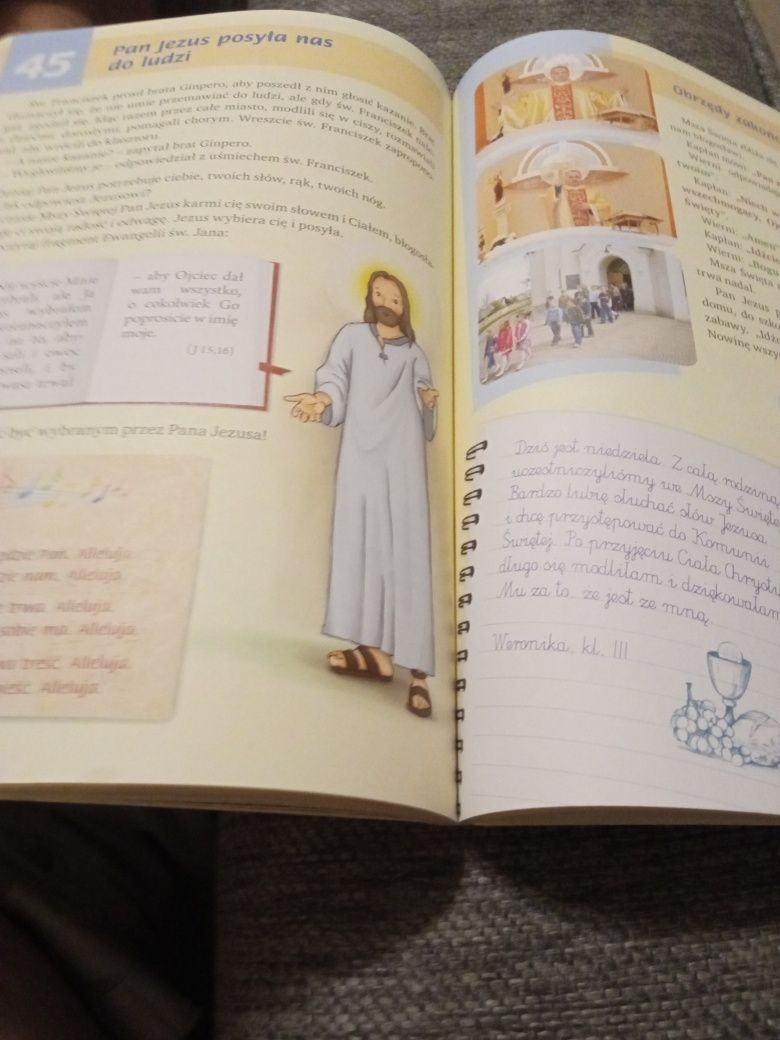 45
Pan Jezus posyła nas
do ludzi
Św. Franciszek prosił brata Ginpero, aby poszedł z nim głosić kazanie. Brat
tłumaczył się, że nie umie przemawiać do ludzi, ale gdy św. Franciszek
razem przez całe miasto, modlili się w ciszy, rozmawiali
pomagali chorym. Wreszcie św. Franciszek zapropono-
wrócili do klasztoru.
– A nasze kazanie? – zapytał brat Ginpero.
– odpowiedział z uśmiechem św. Franciszek.
Pan Jezus potrzebuje ciebie, twoich słów, rąk, twoich nóg.
Jak odpowiesz Jezusowi?
Mszy Świętej Pan Jezus karmi cię swoim słowem i Ciałem, błogosła-
swoją radość i odwagę. Jezus wybiera cię i posyła.
fragment Ewangelii św. Jana:
wyście Mnie
ale Ja
was wybrałem
przeznaczyłem
na to, aby-
i owoc
i by
trwał
– aby Ojciec dał
wam wszystko,
o cokolwiek Go
poprosicie w imię
moje.
(J 15,16)
być wybranym przez Pana Jezusa!
Pan. Alleluja.
nam. Alleluja.
trwa. Alleluja.
ma. Alleluja.
treść. Alleluja.
Alleluja.
Obrzędy zakoń
Msza Święta
nam błogosławi.
Kapłan mówi: „Pan
Wierni odpowiada
twoim”.
Kapłan: „Niech
wszechmogący, Oj
Święty”.
Wierni: „Amen
Kapłan: „Idźcie
Wierni: „Bogu
Msza Święta
trwa nadal.
Pan Jezus p
domu, do szk
zabawy. „Idź
Nowinę wszy
Dziś jest niedziela. Z całą rodziną
uczestniczyliśmy we Mszy Święte
Bardzo lubię słuchać słów Jezusa
i chcę przystępować do Komunii
Świętej. Po przyjęciu Ciała Chrystu
długo się modliłam i dziękowałam
Mu za to, że jest ze mną.
Weronika, kl. III